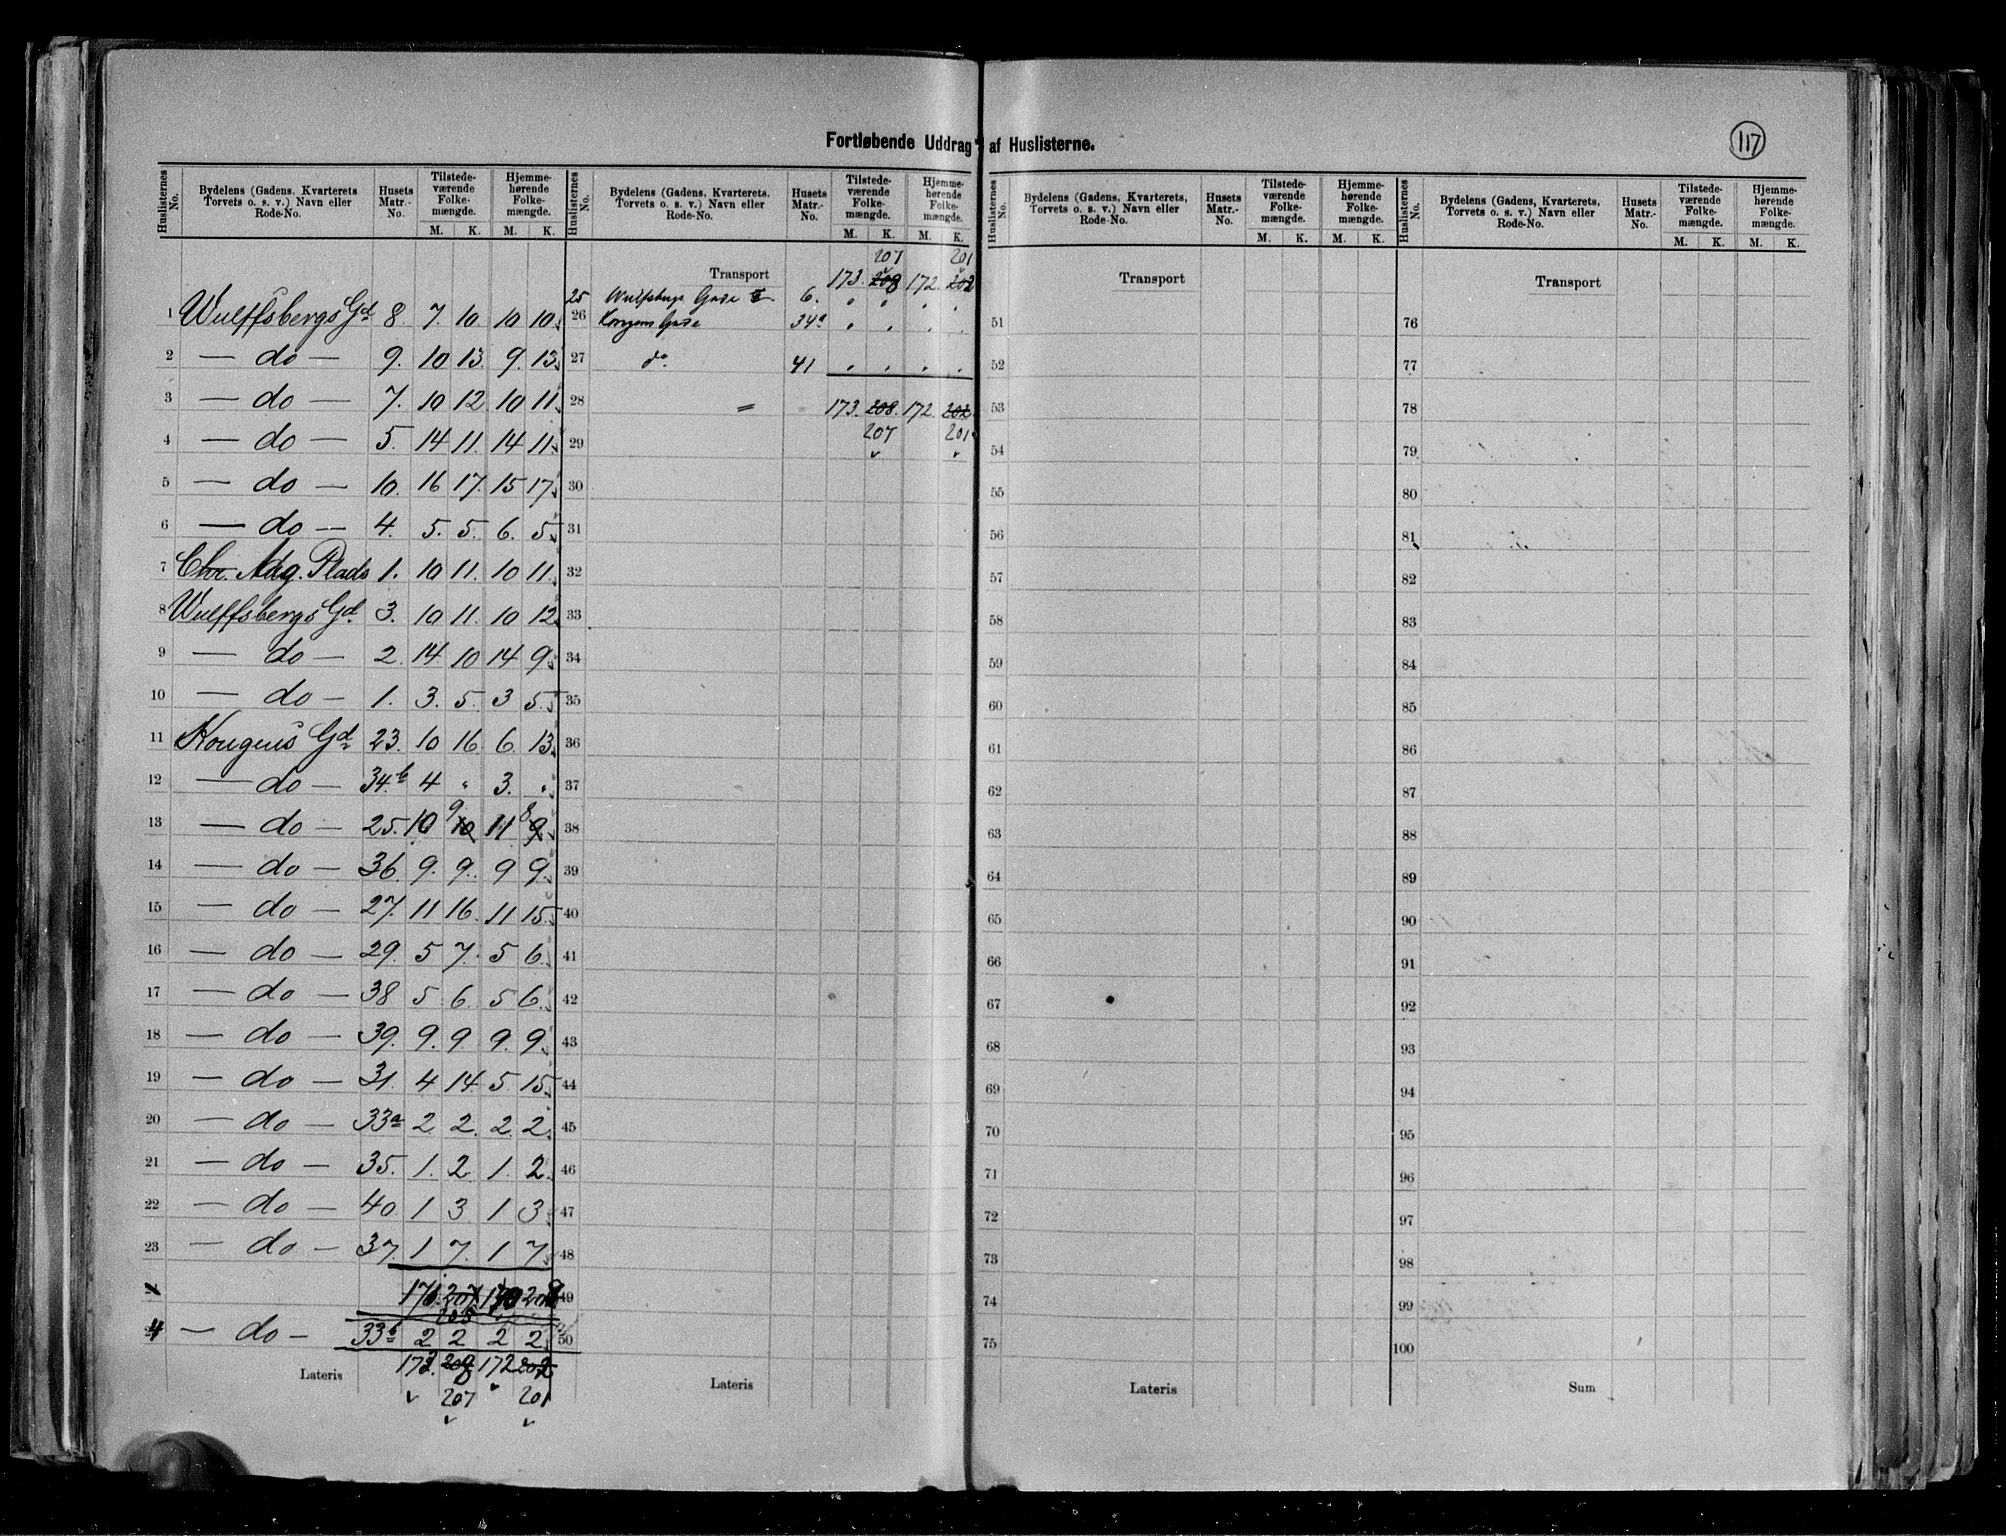 Fortløbende Uddrag af Huslisterne.
117
Huslisternes No. | Bydelens (Gadens, Kvarterets Torvets o. s. v.) Navn eller Rode-No. | Husets Matr.-No. | Tilstedeværende Folkemængde. M. K. | Hjemmehørende Folkemængde. M. K.
1 Wulffsbergs Gd. 8 7. 10. 10 10.
2 — do — 9. 10 13. 9. 13.
3 — do — 7. 10 12 10 11.
4 — do — 5. 14 11. 14 11.
5 — do — 10. 16 17. 15 17.
6 — do — 4. 5. 5. 6. 5.
7 Chr. Aug. Plads 1. 10 11. 10 11.
8 Wulffsbergs Gd. 3. 10 11. 10 12.
9 — do — 2. 14. 10 14 9.
10 — do — 1. 3. 5. 3 5.
11 Kongens Gd. 23. 10 16 6. 13.
12 — do — 34.b 4 " 3. "
13 — do — 25. 10 9 10 11 8 9
14 — do — 36. 9. 9. 9 9.
15 — do — 27. 11 16. 11 15.
16 — do — 29. 5 7. 5 6.
17 — do — 38 5 6. 5 6.
18 — do — 39. 9. 9 9. 9.
19 — do — 31. 4 14. 5. 15.
20 — do — 33a 2 2. 2. 2.
21 — do — 35. 1. 2 1. 2.
22 — do — 40. 1 3. 1 3.
23 — do — 37. 1 7. 1 7.
205
— do — 33b 2 2 2 2
172 202
207 201
Lateris
Huslisternes No. | Bydelens (Gadens, Kvarterets. Torvets o. s. v.) Navn eller Rode-No. | Husets Matr.-No. | Tilstedeværende Folkemængde. M. K. | Hjemmehørende Folkemængde. M. K.
207 201
Transport 173. 208 172. 202
25 Gade 6. " " " "
26 Kongens Gade 34a " " " "
27 do. 41 " " " "
28 = 173. 208. 172. 202.
29 207 201
30
31
32
33
34
35
36
37
38
39
40
41
42
43
44
45
46
47
48
49
50
Lateris
Huslisternes No. | Bydelens (Gadens, Kvarterets, Torvets o. s. v.) Navn eller Rode-No. | Husets Matr.-No. | Tilstedeværende Folkemængde. M. K. | Hjemmehørende Folkemængde. M. K.
Transport
51
52
53
54
55
56
57
58
59
60
61
62
63
64
65
66
67
68
69
70
71
72
73
74
75
Lateris
Huslisternes No. | Bydelens (Gadens, Kvarterets, Torvets o. s. v.) Navn eller Rode-No. | Husets Matr.-No. | Tilstedeværende Folkemængde. M. K. | Hjemmehørende Folkemængde. M. K.
Transport
76
77
78
79
80
81
82
83
84
85
86
87
88
89
90
91
92
93
94
95
96
97
98
99
100
Sum